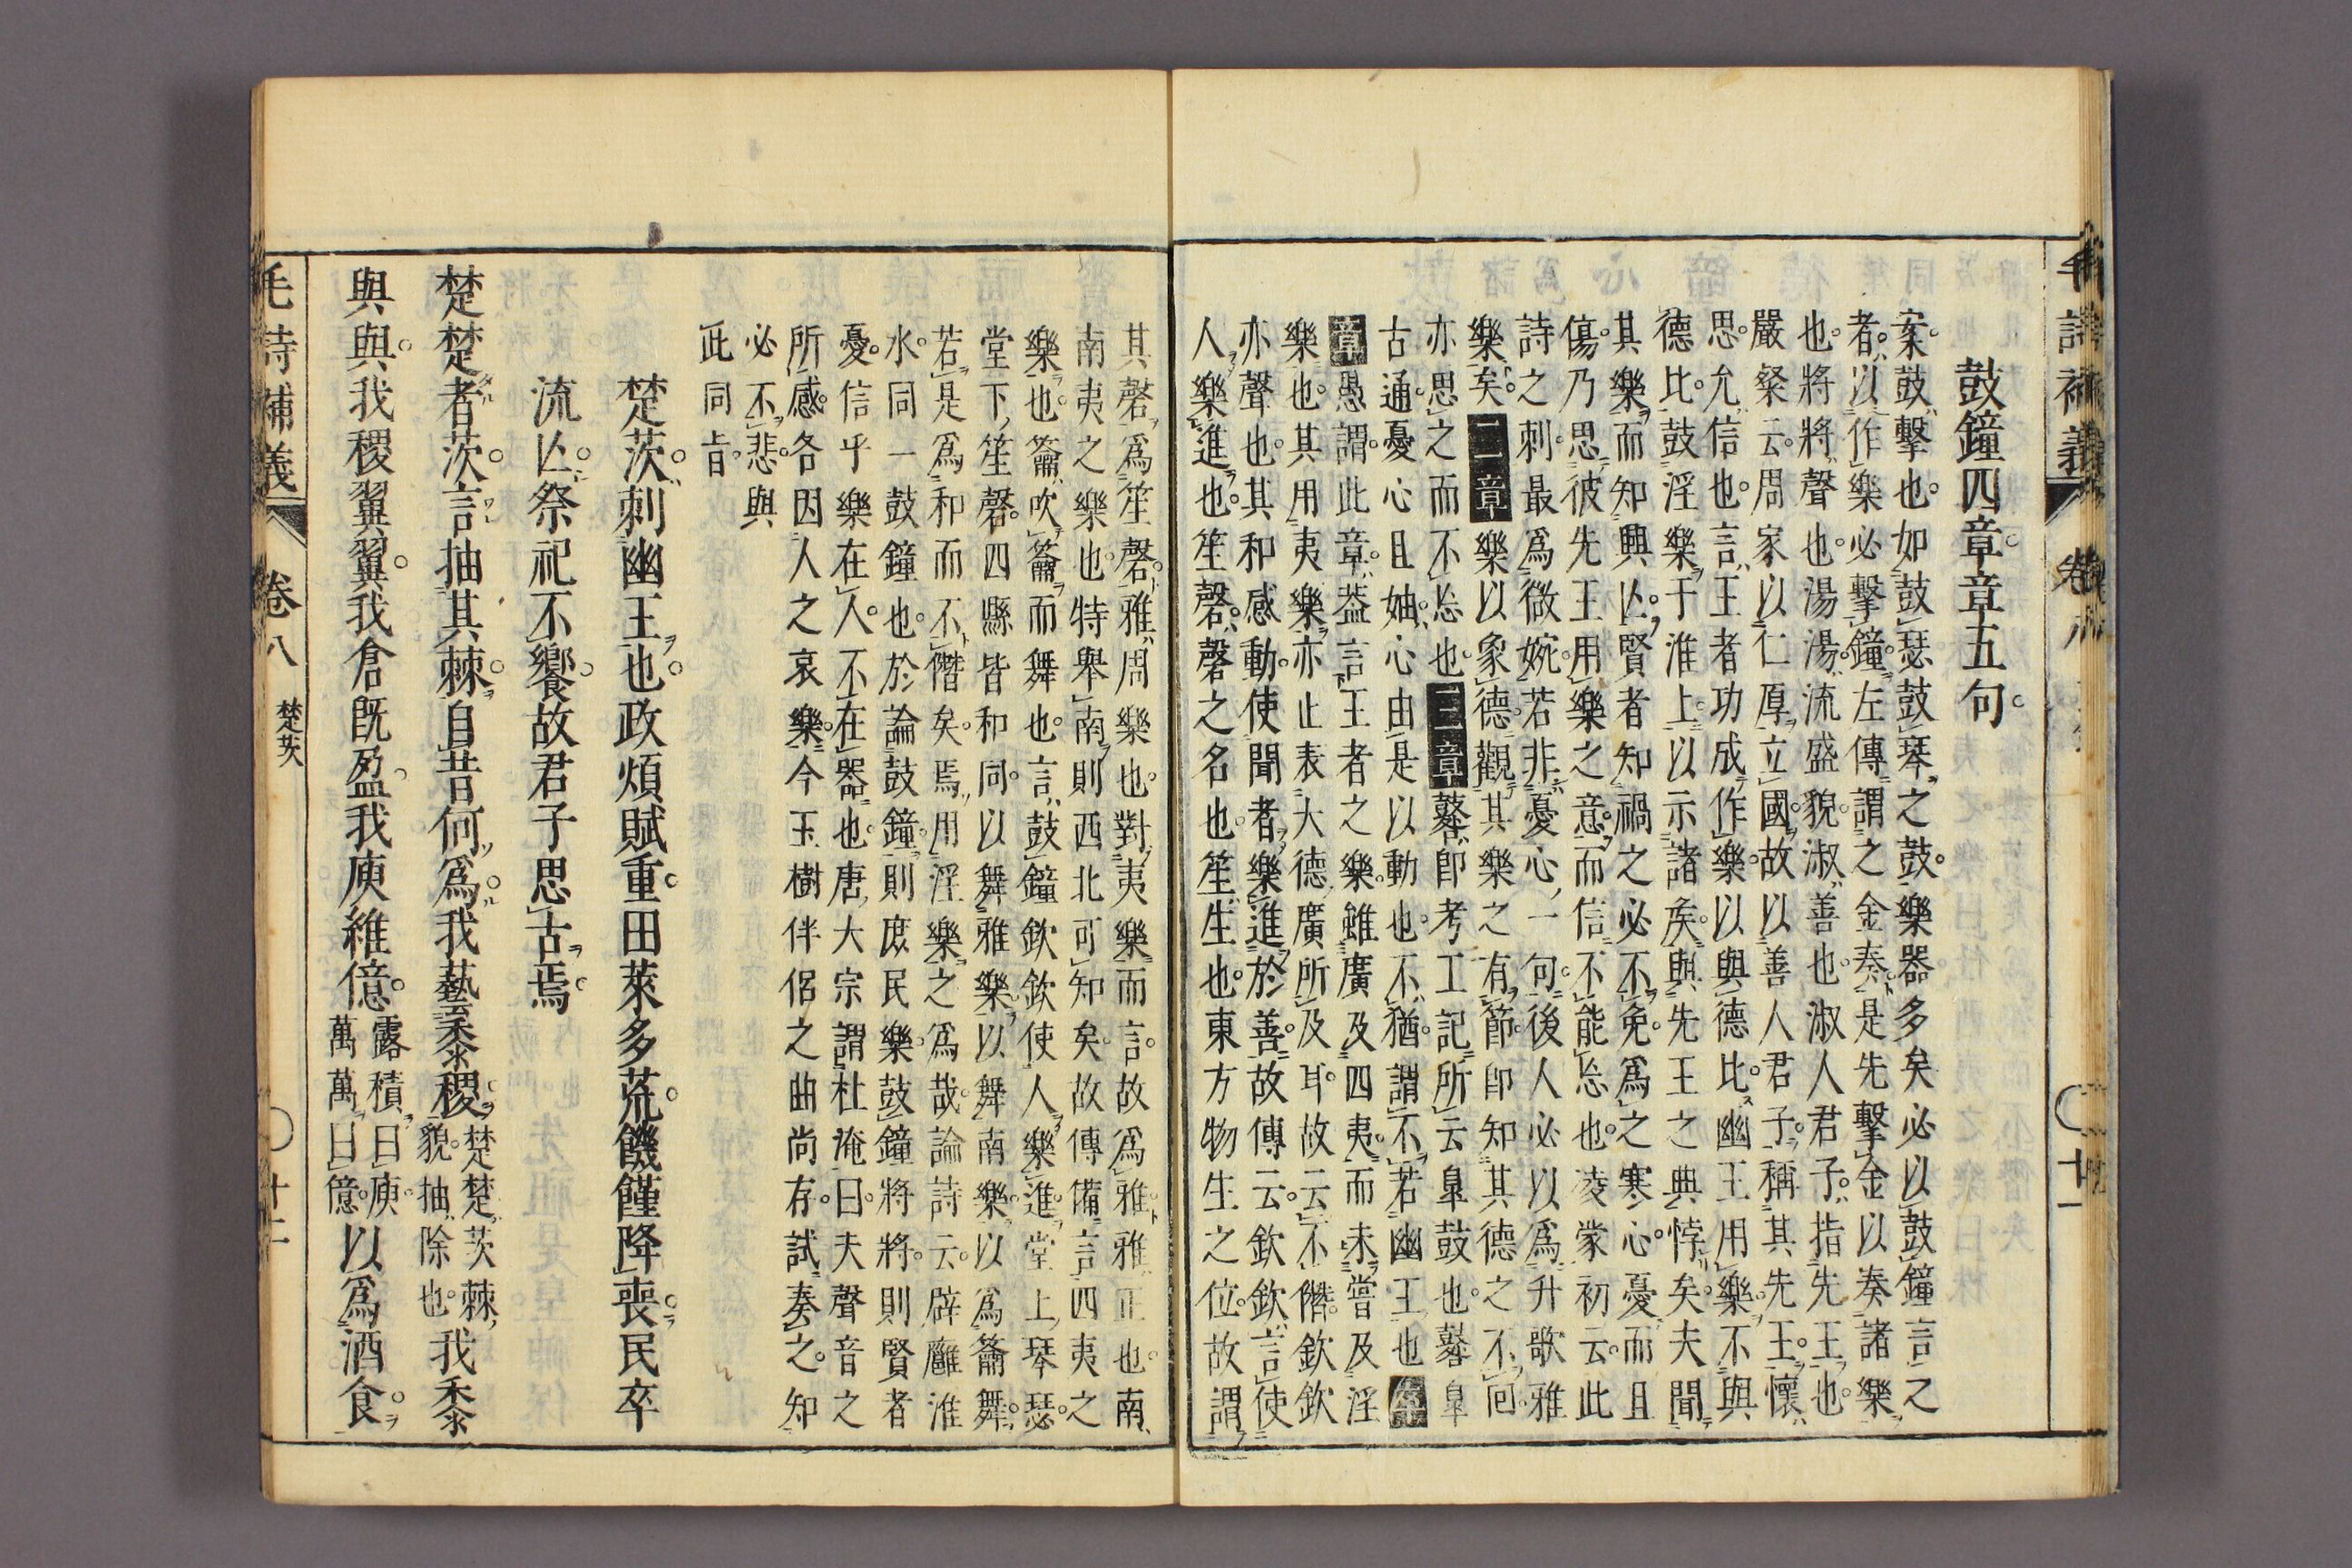 鼓鐘四章章五句
案鼓擊也如鼓瑟鼓琴之鼓樂器多矣必以鼓鐘言之
者以作樂必擊鐘左傳謂之金奏是先擊金以奏諸樂
也將將聲也湯湯流盛貌淑善也淑人君子指先王也
嚴粲云周家以仁厚立國故以善人君子稱其先王懷
思允信也言王者功成作樂以與德比幽王用樂不與
德比鼓淫樂于淮上以示諸矦與先王之典悖矣夫聞
其樂而知興亾賢者知禍之必不免爲之寒心憂而且
傷乃思彼先王用樂之意而信不能忘也凌蒙初云此
詩之刺最爲微婉若非憂心一句後人必以爲升歌雅
樂矣二章樂以象德觀其樂之有節卽知其德之不回
亦思之而不忘也三章鼛卽考工記所云臯鼓也鼛臯
古通憂心且妯心由是以動也不猶謂不若幽王也卒
章愚謂此章葢言王者之樂雖廣及四夷而未嘗及淫
樂也其用夷樂亦止表大德廣所及耳故云不僭欽欽
亦聲也其和感動使聞者樂進於善故傳云欽欽言使
人樂進也笙磬磬之名也笙生也東方物生之位故謂
其磬爲笙磬雅周樂也對夷樂而言故爲雅雅正也南
南夷之樂也特舉南則西北可知矣故傳備言四夷之
樂也籥吹籥而舞也言鼓鐘欽欽使人樂進堂上琴瑟
堂下笙磬四縣皆和同以舞雅樂以舞南樂以爲籥舞
若是爲和而不僭矣焉用淫樂之爲哉論詩云辟廱淮
水同一鼓鐘也於論鼓鐘則庶民樂鼓鐘將將則賢者
憂信乎樂在人不在器也唐大宗謂杜淹曰夫聲音之
所感各因人之哀樂今玉樹伴侶之曲尚存試奏之知
必不悲與
此同㫖
楚茨刺幽王也政煩賦重田萊多荒饑饉降喪民卒
流亾祭祀不饗故君子思古焉
楚楚者茨言抽其棘自昔何爲我藝黍稷楚楚茨棘
貌抽除也我黍
與與我稷翼翼我倉旣盈我庾維億露積曰庾
萬萬曰億以爲酒食
毛詩補義 卷八 楚茨 廿二